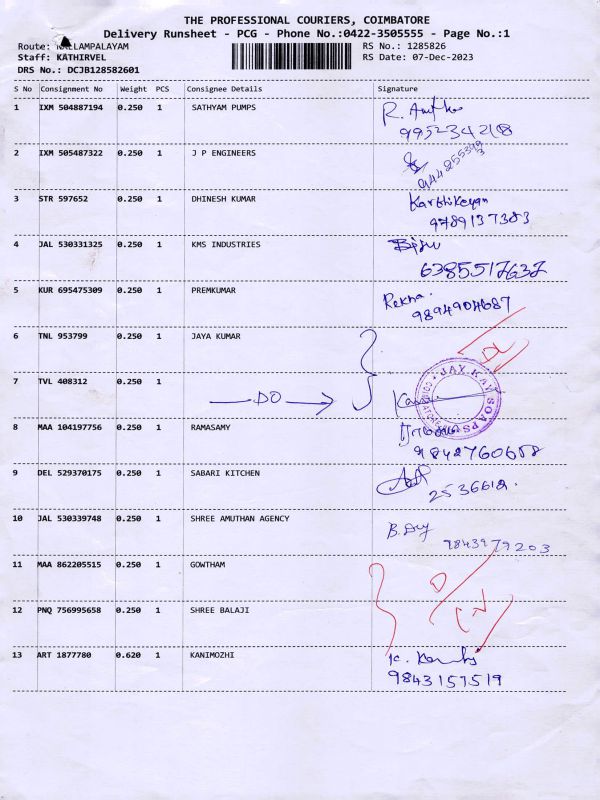 THE PROFESSIONAL COURIERS, COIMBATORE
Delivery Runsheet - PCG - Phone No.:0422-3505555 - Page No.:1
Route: KALLAMPALAYAM RS No.: 1285826
Staff: KATHIRVEL RS Date: 07-Dec-2023
DRS No.: DCJB128582601
S No Consignment No Weight PCS Consignee Details Signature
1 IXM 504887194 0.250 1 SATHYAM PUMPS
995234218
2 IXM 505487322 0.250 1 J P ENGINEERS
3 STR 597652 0.250 1 DHINESH KUMAR Karthikeyan
9789137383
4 JAL 530331325 0.250 1 KMS INDUSTRIES Biju
6385517637
5 KUR 695475309 0.250 1 PREMKUMAR Rekha.
9894904687
6 TNL 953799 0.250 1 JAYA KUMAR
DL
7 TVL 408312 0.250 1
DO
JAY KAY SOAPS
8 MAA 104197756 0.250 1 RAMASAMY
9842760658
9 DEL 529370175 0.250 1 SABARI KITCHEN
2536612.
10 JAL 530339748 0.250 1 SHREE AMUTHAN AGENCY
9843979203
11 MAA 862205515 0.250 1 GOWTHAM
12 PNQ 756995658 0.250 1 SHREE BALAJI
13 ART 1877780 0.620 1 KANIMOZHI
9843157519